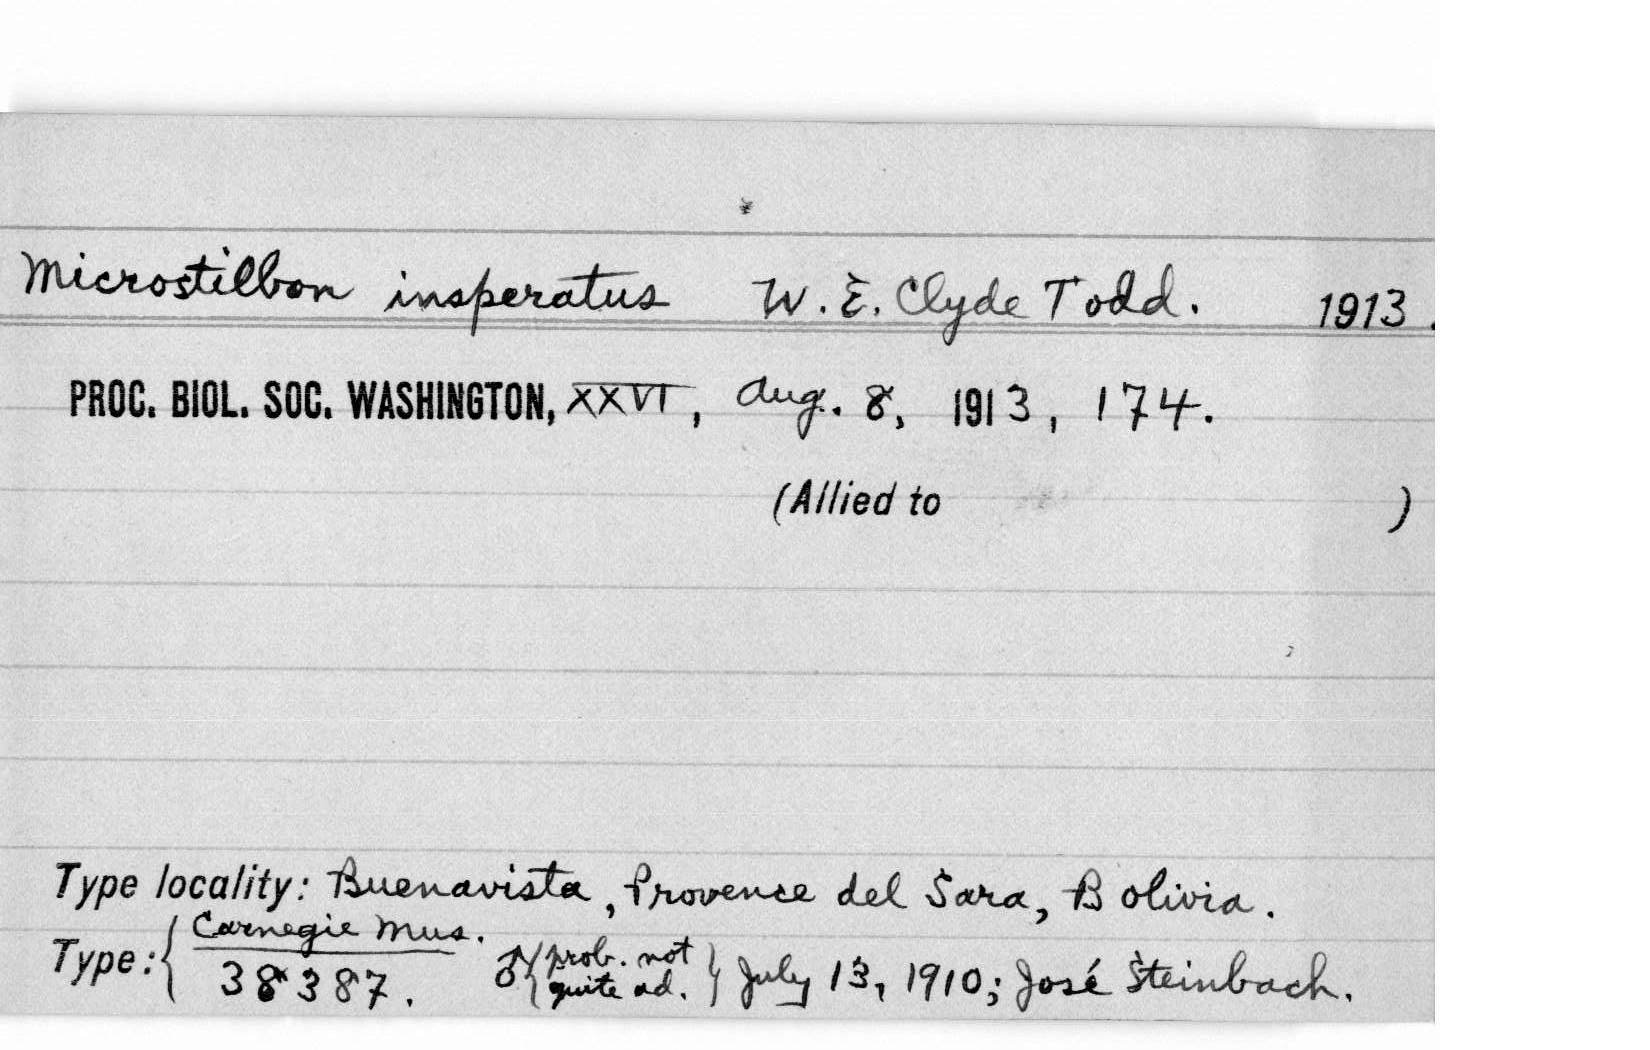 Microstilbon insperatus W. E. Clyde Todd. 1913.
PROC. BIOL. SOC. WASHINGTON, XXVI, Aug. 8, 1913, 174.
(Allied to )
Type locality: Buenavista, Provence del Sara, Bolivia.
Type: { Carnegie Mus. 38387. ♂ { prob. not quite ad. } July 13, 1910; José Steinbach.